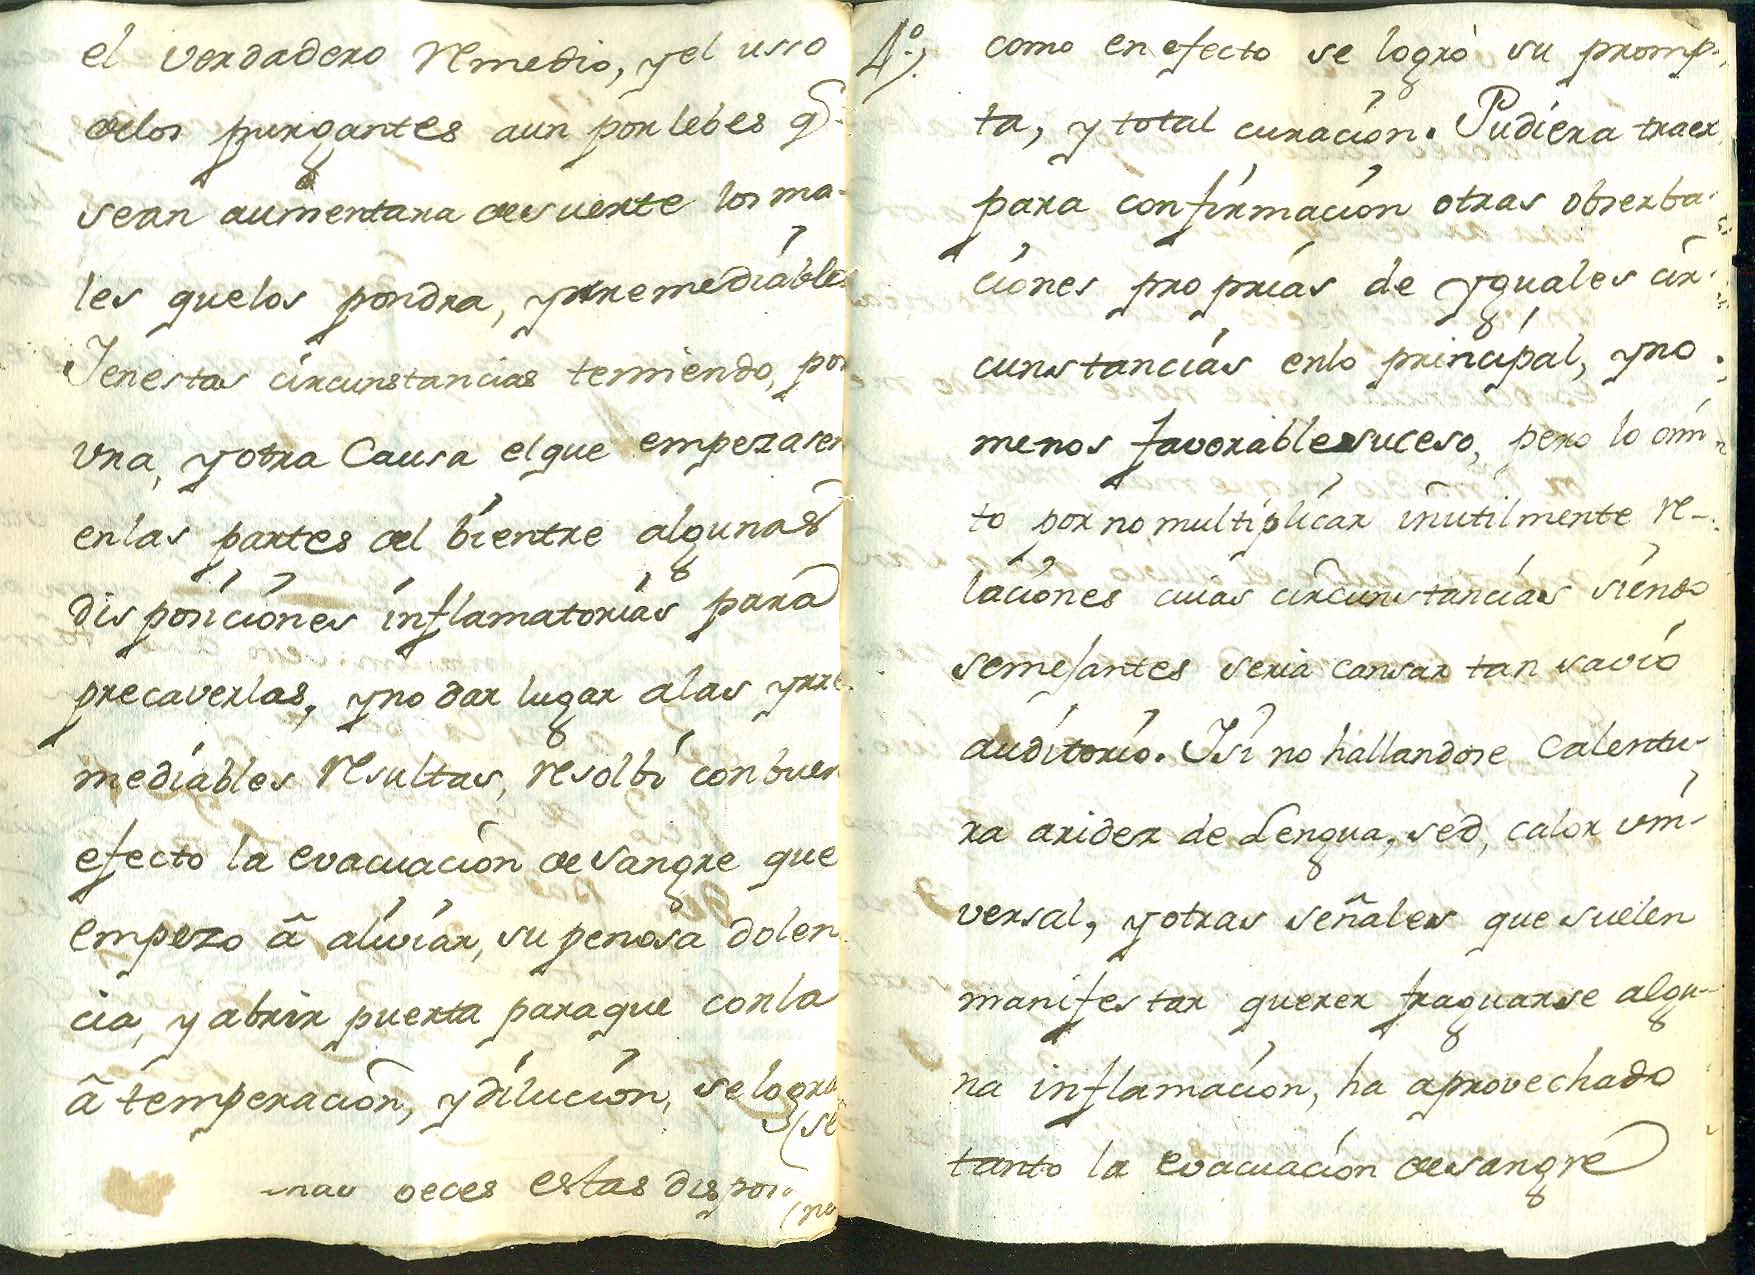 el verdadero remedio, y el usso
delos purgantes aun por lebes q.^e
sean aumentara desuerte los ma-
les quelos pondra, yrremediables
Jenestas circunstancias temiendo, por
una, y otra Causa elque empezasen
enlas partes del bientre algunas
disposiciones inflamatorias para
precaverlas, yno dar lugar alas yrre
mediables resultas, resolbi conbuen
efecto la evacuacion desangre que
empezo â aliviar, su penosa dolen
cia, y abrir puerta paraque conla
â temperacion, y dilucion, se logra
(se
veces estas disposi
4º,
como en efecto se logró su promp-
ta, y total curacion. Pudiera traer
para confirmacion otras obserba-
ciones proprias de yguales cir-
cunstancias enlo principal, yno
menos favorable suceso, pero lo omi
to por no multiplicar inutilmente re-
laciones cuias circunstancias siendo
semejantes seria cansar tan savio
auditorio. Jsi no hallandose Calentu-
ra aridez de Lengua, sed, calor uni-
versal, y otras señales que suelen
manifestar querer fraguarse algu-
na inflamacion, ha aprovechado
tanto la evacuacion desangre